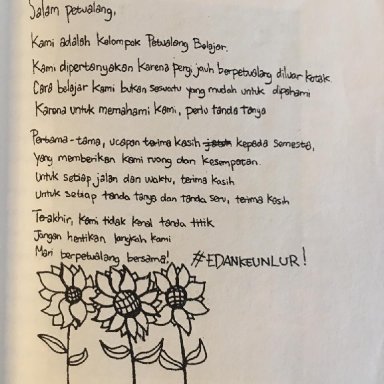 Salam petualang,
Kami adalah Kelompok Petualang Belajar.
Kami dipertanyakan karena pergi jauh berpetualang diluar kotak.
Cara belajar kami bukan sesuatu yang mudah untuk dipahami
Karena untuk memahami kami, perlu tanda tanya
Pertama-tama, ucapan terima kasih kepada semesta,
yang memberikan kami ruang dan kesempatan.
Untuk setiap jalan dan waktu, terima kasih
Untuk setiap tanda tanya dan tanda seru, terima kasih
Terakhir, kami tidak kenal tanda titik
Jangan hentikan langkah kami
Mari berpetualang bersama! #EDANKEUNLUR!